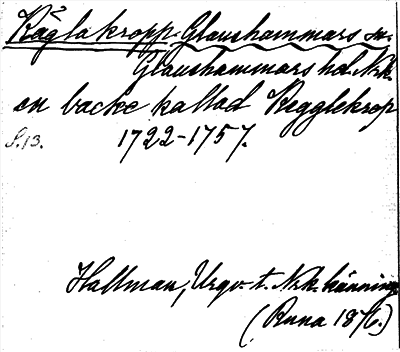 Käglakropp. Glanshammars sn.
Glanshammars hd. Nrk.
en backe kallad Kegglekrop
S. 13. 1722-1757.
Hallman, Urgv. t. Nrk. känning
(Runa 1876.)